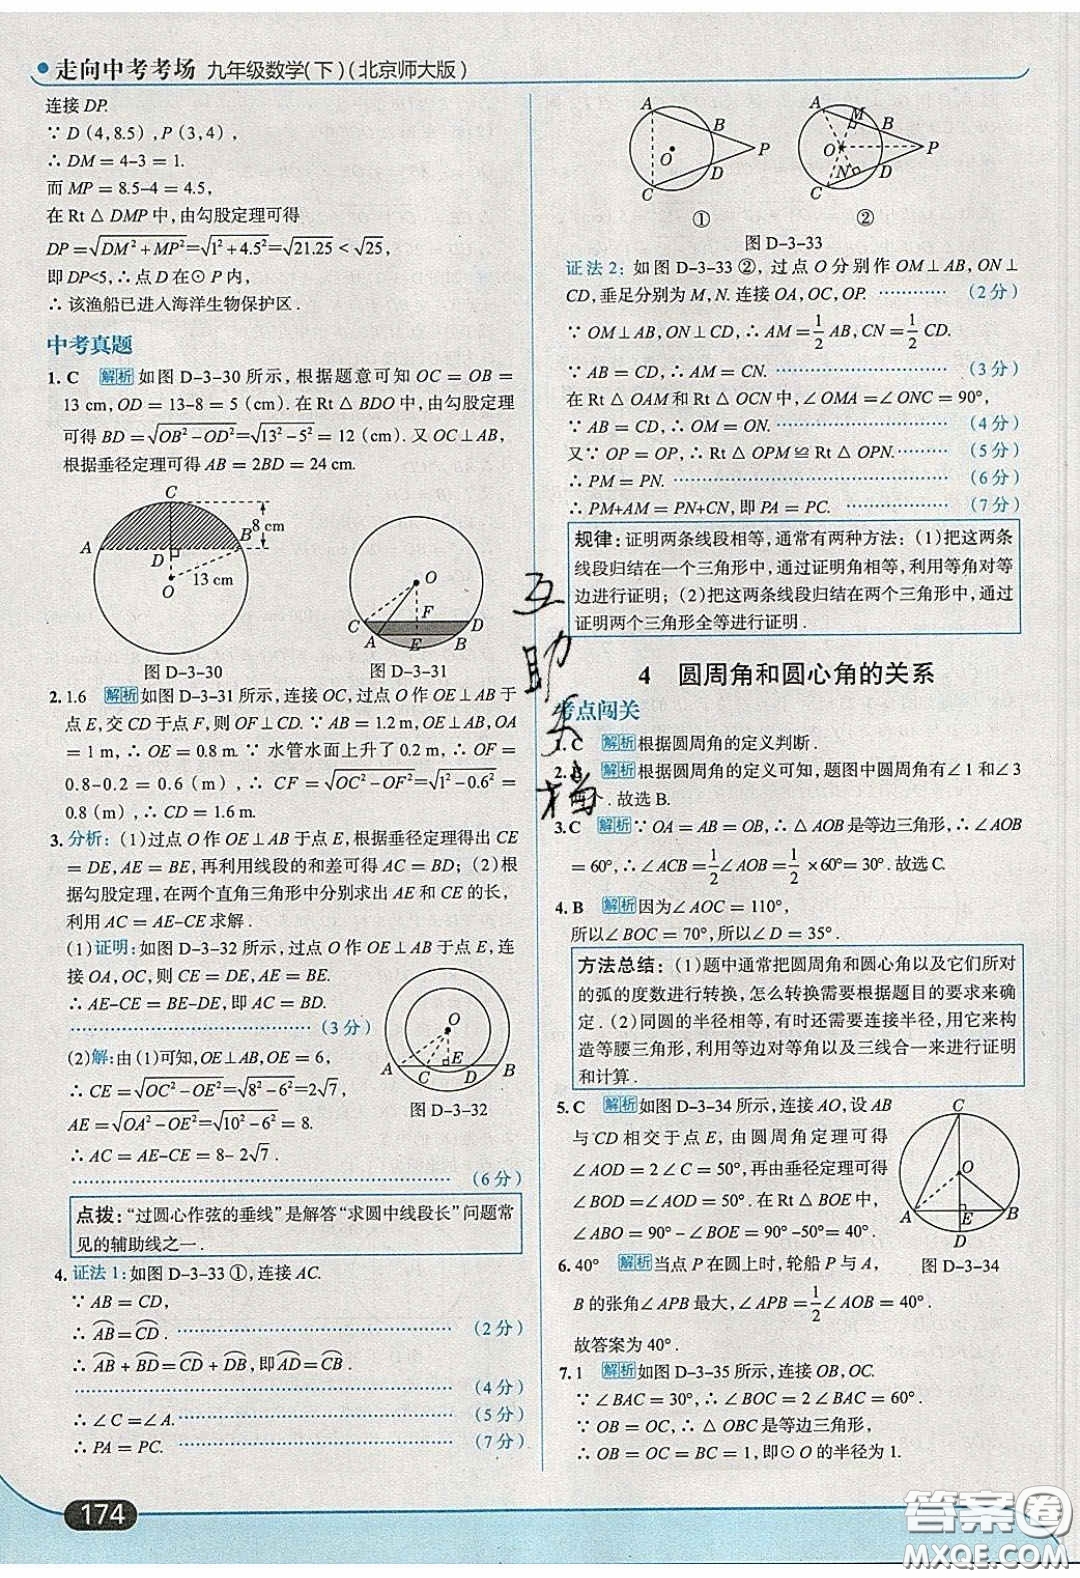 走向中考考场 九年级数学(下)(北京师大版)
连接 DP.
∵ D (4,8.5), P (3,4),
∴ DM = 4-3 = 1.
而 MP = 8.5-4 = 4.5,
在 Rt △ DMP 中,由勾股定理可得
DP = √(DM²+MP²) = √(1²+4.5²) = √21.25 < √25,
即 DP<5,∴ 点 D 在⊙ P 内,
∴ 该渔船已进入海洋生物保护区.
中考真题
1. C 解析 如图 D-3-30 所示,根据题意可知 OC = OB =
13 cm, OD = 13-8 = 5 (cm). 在 Rt △ BDO 中,由勾股定
理可得 BD = √(OB²-OD²) = √(13²-5²) = 12 (cm). 又 OC⊥AB,
根据垂径定理可得 AB = 2BD = 24 cm.
C
8 cm
A
B
D
13 cm
O
图 D-3-30
O
F
C
D
A
E
B
图 D-3-31
2. 1.6 解析 如图 D-3-31 所示,连接 OC,过点 O 作 OE⊥AB 于
点 E,交 CD 于点 F,则 OF⊥CD. ∵ AB = 1.2 m, OE⊥AB, OA
= 1 m,∴ OE = 0.8 m. ∵ 水管水面上升了 0.2 m,∴ OF =
0.8-0.2 = 0.6 (m),∴ CF = √(OC²-OF²) = √(1²-0.6²) =
0.8 (m),∴ CD = 1.6 m.
3. 分析:(1)过点 O 作 OE⊥AB 于点 E,根据垂径定理得出 CE
= DE, AE = BE,再利用线段的和差可得 AC = BD;(2)根
据勾股定理,在两个直角三角形中分别求出 AE 和 CE 的长,
利用 AC = AE-CE 求解.
(1)证明:如图 D-3-32 所示,过点 O 作 OE⊥AB 于点 E,连
接 OA, OC,则 CE = DE, AE = BE.
∴ AE-CE = BE-DE,即 AC = BD.
(3 分)
(2)解:由(1)可知,OE⊥AB, OE = 6,
∴ CE = √(OC²-OE²) = √(8²-6²) = 2√7,
AE = √(OA²-OE²) = √(10²-6²) = 8.
∴ AC = AE-CE = 8-2√7.
(6 分)
O
A
C
E
D
B
图 D-3-32
点拨:“过圆心作弦的垂线”是解答“求圆中线段长”问题常
见的辅助线之一.
4. 证法 1:如图 D-3-33 ①,连接 AC.
∵ AB = CD,
∴ ⌒AB = ⌒CD. (2 分)
∴ ⌒AB + ⌒BD = ⌒CD + ⌒DB,即⌒AD = ⌒CB.
(4 分)
∴ ∠C = ∠A. (5 分)
∴ PA = PC. (7 分)
174
A
B
O
P
C
D
①
A
M
B
O
P
N
C
D
②
图 D-3-33
证法 2:如图 D-3-33 ②,过点 O 分别作 OM⊥AB, ON⊥
CD,垂足分别为 M, N. 连接 OA, OC, OP. (2 分)
∵ OM⊥AB, ON⊥CD,∴ AM = 1/2 AB, CN = 1/2 CD.
∵ AB = CD,∴ AM = CN. (3 分)
在 Rt △ OAM 和 Rt △ OCN 中,∠OMA = ∠ONC = 90°,
∵ AB = CD,∴ OM = ON. (4 分)
又∵ OP = OP,∴ Rt △ OPM ≌ Rt △ OPN. (5 分)
∴ PM = PN. (6 分)
∴ PM+AM = PN+CN,即 PA = PC. (7 分)
规律:证明两条线段相等,通常有两种方法:(1)把这两条
线段归结在一个三角形中,通过证明角相等,利用等角对等
边进行证明;(2)把这两条线段归结在两个三角形中,通过
证明两个三角形全等进行证明.
4 圆周角和圆心角的关系
考点闯关
1. C 解析 根据圆周角的定义判断.
2. B 解析 根据圆周角的定义可知,题图中圆周角有∠1 和∠3
两个. 故选 B.
3. C 解析 ∵ OA = AB = OB,∴ △ AOB 是等边三角形,∴ ∠AOB
= 60°,∴ ∠ACB = 1/2 ∠AOB = 1/2 ×60°= 30°. 故选 C.
4. B 解析 因为∠AOC = 110°,
所以∠BOC = 70°,所以∠D = 35°.
方法总结:(1)题中通常把圆周角和圆心角以及它们所对
的弧的度数进行转换,怎么转换需要根据题目的要求来确
定.(2)同圆的半径相等,有时还需要连接半径,用它来构
造等腰三角形,利用等边对等角以及三线合一来进行证明
和计算.
5. C 解析 如图 D-3-34 所示,连接 AO,设 AB
与 CD 相交于点 E,由圆周角定理可得
∠AOD = 2∠C = 50°,再由垂径定理可得
∠BOD = ∠AOD = 50°. 在 Rt △ BOE 中,
∠ABO = 90°-∠BOD = 90°-50°= 40°.
C
O
A
E
B
D
图 D-3-34
6. 40° 解析 当点 P 在圆上时,轮船 P 与 A、
B 的张角∠APB 最大,∠APB = 1/2 ∠AOB = 40°.
故答案为 40°.
7. 1 解析 如图 D-3-35 所示,连接 OB, OC.
∵ ∠BAC = 30°,∴ ∠BOC = 2∠BAC = 60°.
∵ OB = OC,∴ △ OBC 是等边三角形,
∴ OB = OC = BC = 1,即⊙ O 的半径为 1.
互助文档
答案圈
MXQE.COM